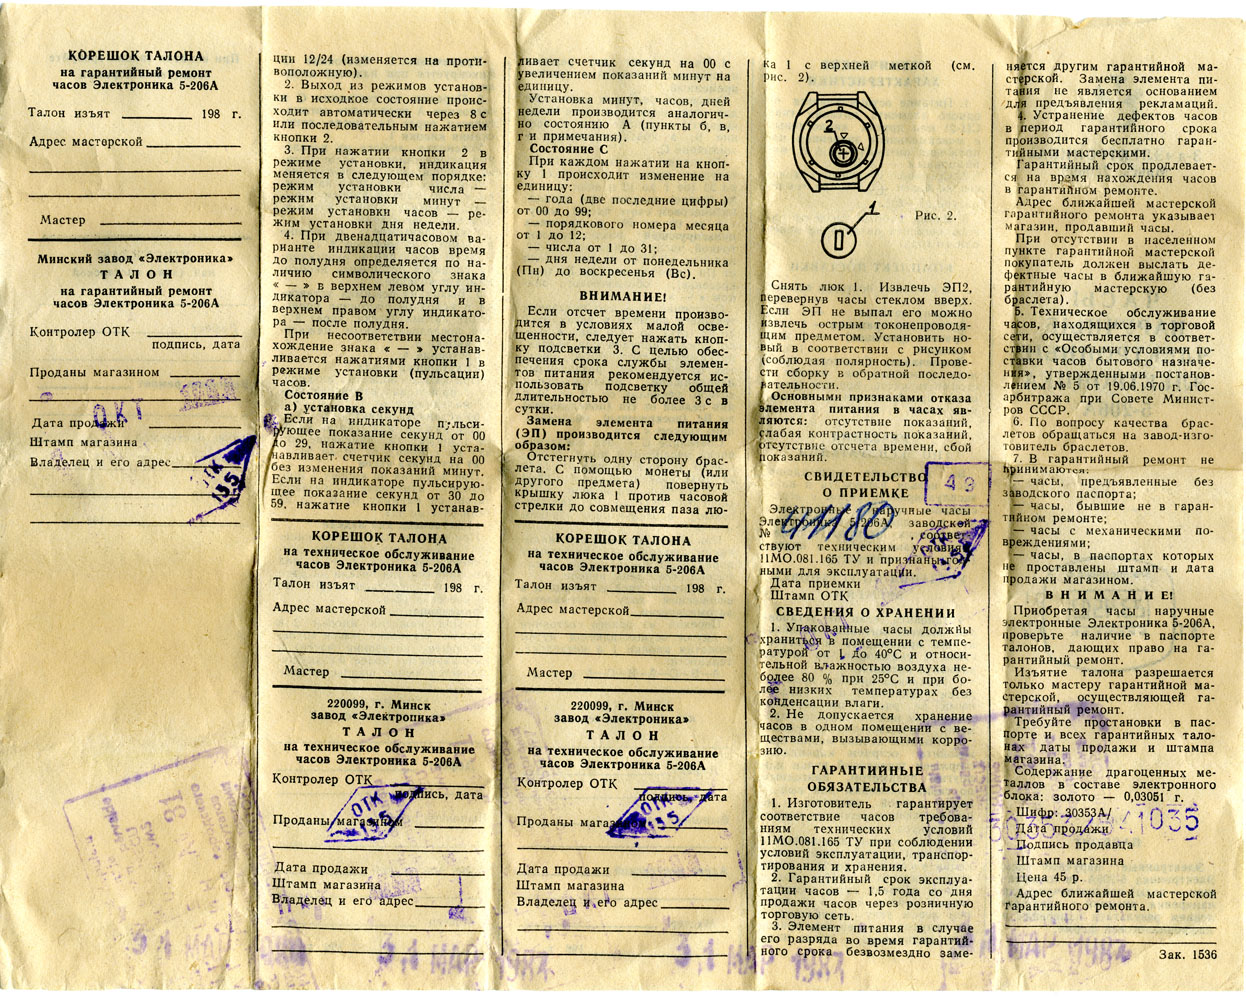 КОРЕШОК ТАЛОНА
на гарантийный ремонт
часов Электроника 5-206А
Талон изъят 198 г.
Адрес мастерской
Мастер
Минский завод «Электроника»
ТАЛОН
на гарантийный ремонт
часов Электроника 5-206А
Контролер ОТК
подпись, дата
Проданы магазином
ОКТ
Дата продажи
Штамп магазина
Владелец и его адрес
ОТК
195
ции 12/24 (изменяется на проти-
воположную).
2. Выход из режимов установ-
ки в исходное состояние проис-
ходит автоматически через 8 с
или последовательным нажатием
кнопки 2.
3. При нажатии кнопки 2 в
режиме установки, индикация
меняется в следующем порядке:
режим установки числа —
режим установки минут —
режим установки часов — ре-
жим установки дня недели.
4. При двенадцатичасовом ва-
рианте индикации часов время
до полудня определяется по на-
личию символического знака
« — » в верхнем левом углу ин-
дикатора — до полудня и в
верхнем правом углу индикато-
ра — после полудня.
При несоответствии местона-
хождение знака « — » устанав-
ливается нажатиями кнопки 1 в
режиме установки (пульсации)
часов.
Состояние В
а) установка секунд
Если на индикаторе пульси-
рующее показание секунд от 00
до 29, нажатие кнопки 1 уста-
навливает счетчик секунд на 00
без изменения показаний минут.
Если на индикаторе пульсирую-
щее показание секунд от 30 до
59, нажатие кнопки 1 устанав-
КОРЕШОК ТАЛОНА
на техническое обслуживание
часов Электроника 5-206А
Талон изъят 198 г.
Адрес мастерской
Мастер
220099, г. Минск
завод «Электроника»
ТАЛОН
на техническое обслуживание
часов Электроника 5-206А
Контролер ОТК
подпись, дата
ОТК
195
Проданы магазином
Дата продажи
Штамп магазина
Владелец и его адрес
ливает счетчик секунд на 00 с
увеличением показаний минут на
единицу.
Установка минут, часов, дней
недели производится аналогич-
но состоянию А (пункты б, в,
г и примечания).
Состояние С
При каждом нажатии на кноп-
ку 1 происходит изменение на
единицу:
— года (две последние цифры)
от 00 до 99;
— порядкового номера месяца
от 1 до 12;
— числа от 1 до 31;
— дня недели от понедельника
(Пн) до воскресенья (Вс).
ВНИМАНИЕ!
Если отсчет времени произво-
дится в условиях малой осве-
щенности, следует нажать кноп-
ку подсветки 3. С целью обес-
печения срока службы элемен-
тов питания рекомендуется ис-
пользовать подсветку общей
длительностью не более 3 с в
сутки.
Замена элемента питания
(ЭП) производится следующим
образом:
Отстегнуть одну сторону брас-
лета. С помощью монеты (или
другого предмета) повернуть
крышку люка 1 против часовой
стрелки до совмещения паза лю-
КОРЕШОК ТАЛОНА
на техническое обслуживание
часов Электроника 5-206А
Талон изъят 198 г.
Адрес мастерской
Мастер
220099, г. Минск
завод «Электроника»
ТАЛОН
на техническое обслуживание
часов Электроника 5-206А
Контролер ОТК
подпись, дата
ОТК
195
Проданы магазином
Дата продажи
Штамп магазина
Владелец и его адрес
31 МАР 1987
ка 1 с верхней меткой (см.
рис. 2).
2
1
Рис. 2.
Снять люк 1. Извлечь ЭП2,
перевернув часы стеклом вверх.
Если ЭП не выпал его можно
извлечь острым токонепроводя-
щим предметом. Установить но-
вый в соответствии с рисунком
(соблюдая полярность). Прове-
сти сборку в обратной последо-
вательности.
Основными признаками отказа
элемента питания в часах яв-
ляются: отсутствие показаний,
слабая контрастность показаний,
отсутствие отсчета времени, сбой
показаний.
СВИДЕТЕЛЬСТВО
О ПРИЕМКЕ
43
Электронные наручные часы
Электроника 5-206А, заводской
№ 41180 соответ-
ствуют техническим условиям
11М0.081.165 ТУ и признаны год-
ными для эксплуатации.
Дата приемки
Штамп ОТК
ОТК
195
СВЕДЕНИЯ О ХРАНЕНИИ
1. Упакованные часы должны
храниться в помещении с темпе-
ратурой от 1 до 40°С и относи-
тельной влажностью воздуха не-
более 80 % при 25°С и при бо-
лее низких температурах без
конденсации влаги.
2. Не допускается хранение
часов в одном помещении с ве-
ществами, вызывающими корро-
зию.
ГАРАНТИЙНЫЕ
ОБЯЗАТЕЛЬСТВА
1. Изготовитель гарантирует
соответствие часов требова-
ниям технических условий
11М0.081.165 ТУ при соблюдении
условий эксплуатации, транспор-
тирования и хранения.
2. Гарантийный срок эксплуа-
тации часов — 1,5 года со дня
продажи часов через розничную
торговую сеть.
3. Элемент питания в случае
его разряда во время гарантий-
ного срока безвозмездно заме-
няется другим гарантийной ма-
стерской. Замена элемента пи-
тания не является основанием
для предъявления рекламаций.
4. Устранение дефектов часов
в период гарантийного срока
производится бесплатно гаран-
тийными мастерскими.
Гарантийный срок продлевает-
ся на время нахождения часов
в гарантийном ремонте.
Адрес ближайшей мастерской
гарантийного ремонта указывает
магазин, продавший часы.
При отсутствии в населенном
пункте гарантийной мастерской
покупатель должен выслать де-
фектные часы в ближайшую га-
рантийную мастерскую (без
браслета).
5. Техническое обслуживание
часов, находящихся в торговой
сети, осуществляется в соответ-
ствии с «Особыми условиями по-
ставки часов бытового назначе-
ния», утвержденными постанов-
лением № 5 от 19.06.1970 г. Гос-
арбитража при Совете Министров
ров СССР.
6. По вопросу качества брас-
летов обращаться на завод-изго-
товитель браслетов.
7. В гарантийный ремонт не
принимаются:
— часы, предъявленные без
заводского паспорта;
— часы, бывшие не в гаран-
тийном ремонте;
— часы с механическими по-
вреждениями;
— часы, в паспортах которых
не проставлены штамп и дата
продажи магазином.
ВНИМАНИЕ!
Приобретая часы наручные
электронные Электроника 5-206А,
проверьте наличие в паспорте
талонов, дающих право на га-
рантийный ремонт.
Изъятие талона разрешается
только мастеру гарантийной ма-
стерской, осуществляющей га-
рантийный ремонт.
Требуйте простановки в пас-
порте и всех гарантийных тало-
нах даты продажи и штампа
магазина.
Содержание драгоценных ме-
таллов в составе электронного
блока: золото — 0,03051 г.
Шифр: 30353А/
Дата продажи
Подпись продавца
Штамп магазина
Цена 45 р.
Адрес ближайшей мастерской
гарантийного ремонта.
Зак. 1536